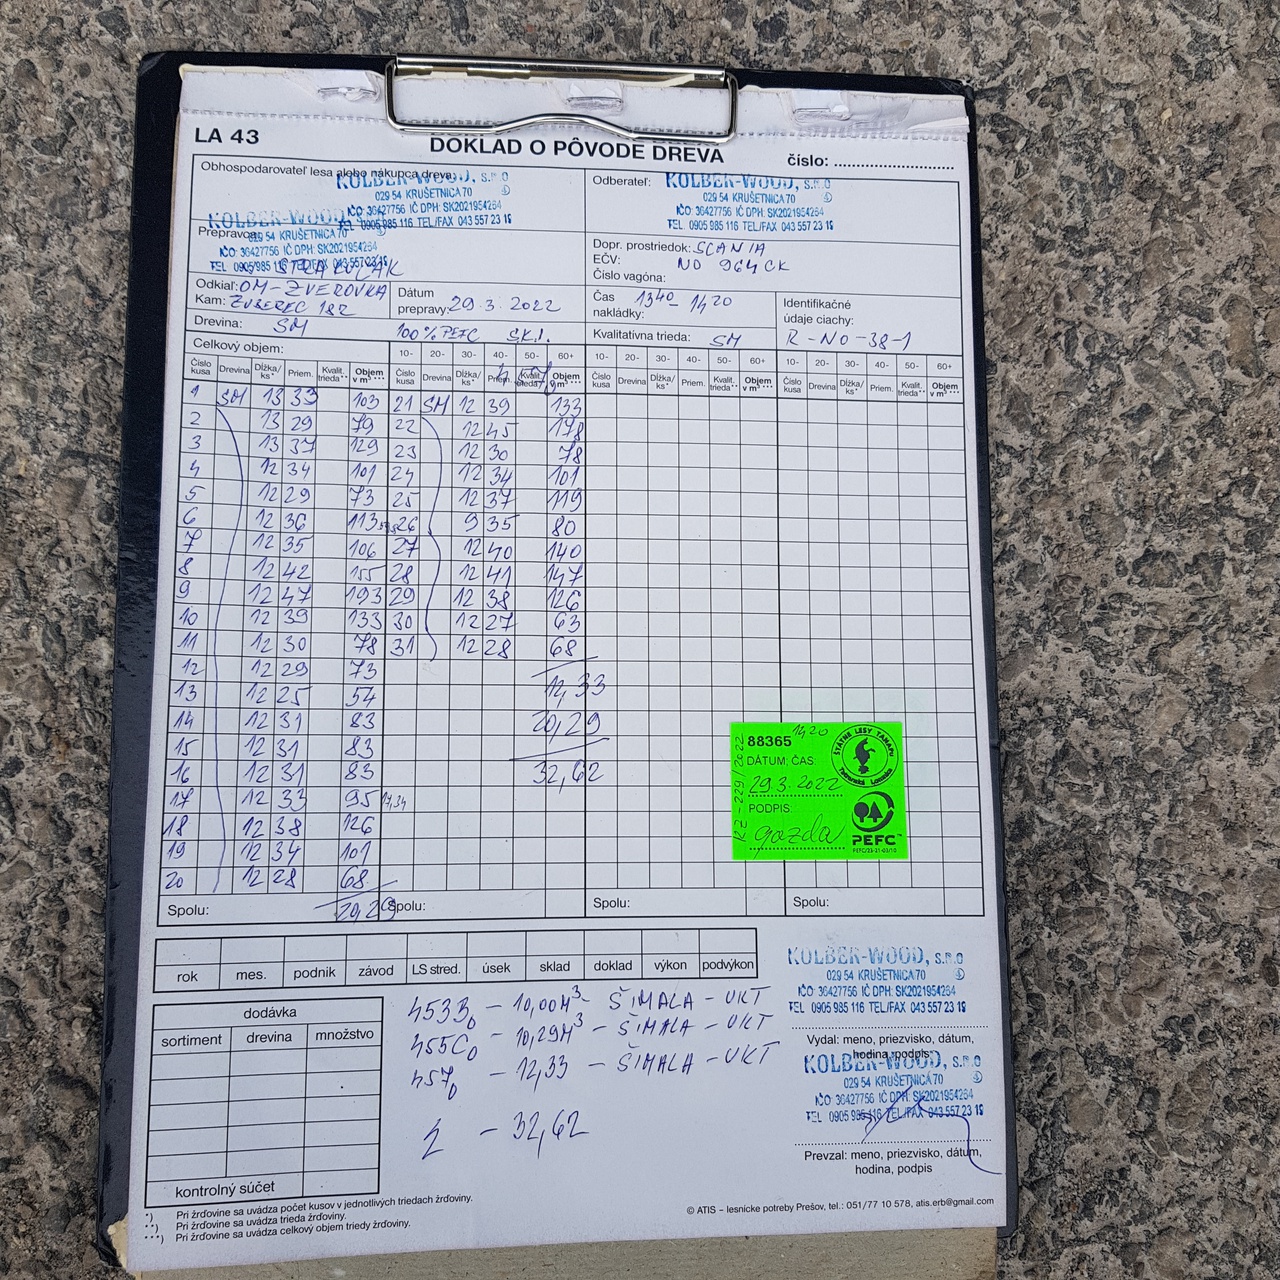 LA 43
DOKLAD O PÔVODE DREVA
číslo:
Obhospodarovateľ lesa alebo nákupca dreva:
KOLBER-WOOD, s.r.o
029 54 KRUŠETNICA 70
IČO: 36427756 IČ DPH: SK2021954264
TEL 0905 985 116 TEL/FAX 043 557 23 18
Odberateľ: KOLBER-WOOD, s.r.o
029 54 KRUŠETNICA 70
IČO: 36427756 IČ DPH: SK2021954264
TEL 0905 985 116 TEL/FAX 043 557 23 18
KOLBER-WOOD
Prepravca:
029 54 KRUŠETNICA 70
IČO: 36427756 IČ DPH: SK2021954264
TEL 0905 985 116 TEL/FAX 043 557 23 18
Dopr. prostriedok: SCANIA
EČV: NO 964CK
Číslo vagóna:
Odkiaľ: OM-ZVEROVKA
Kam: ZUBEREC 182
Dátum
prepravy: 29.3.2022
Čas
nakládky: 13 40 - 14 20
Identifikačné
údaje ciachy:
R-NO-38-1
Drevina: SM
100% PEFC SK.1.
Kvalitatívna trieda: SM
Celkový objem:
10- 20- 30- 40- 50- 60+ 10- 20- 30- 40- 50- 60+ 10- 20- 30- 40- 50- 60+
Číslo kusa Drevina Dĺžka/ks* Priem. Kvalit. trieda** Objem v m³ *** Číslo kusa Drevina Dĺžka/ks* Priem. Kvalit. trieda** Objem v m³ *** Číslo kusa Drevina Dĺžka/ks* Priem. Kvalit. trieda** Objem v m³ *** Číslo kusa Drevina Dĺžka/ks* Priem. Kvalit. trieda** Objem v m³ ***
1 SM 13 33 103 21 SM 12 39 133
2 13 29 79 22 12 45 178
3 13 37 129 23 12 30 78
4 12 34 101 24 12 34 101
5 12 29 73 25 12 37 119
6 12 36 113 26 9 35 80
7 12 35 106 27 12 40 140
8 12 42 155 28 12 41 147
9 12 47 193 29 12 38 126
10 12 39 133 30 12 27 63
11 12 30 78 31 12 28 68
12 12 29 73
13 12 25 54 12,33
14 12 31 83 20,29
15 12 31 83
16 12 31 83 32,62
17 12 33 95
18 12 38 126
19 12 34 101
20 12 28 68
Spolu: 20,29 Spolu: Spolu: Spolu:
88365 14 20
DÁTUM; ČAS:
29.3.2022
PODPIS:
gazda
ŠTÁTNE LESY TANAPU
Tatranská Lomnica
PEFC
rok mes. podnik závod LS stred. úsek sklad doklad výkon podvýkon
KOLBER-WOOD, s.r.o
029 54 KRUŠETNICA 70
IČO: 36427756 IČ DPH: SK2021954264
TEL 0905 985 116 TEL/FAX 043 557 23 18
dodávka
sortiment drevina množstvo
453B0 - 10,00M³ - ŠIMALA - UKT
455C0 - 10,29M³ - ŠIMALA - UKT
4570 - 12,33 - ŠIMALA - UKT
Σ - 32,62
Vydal: meno, priezvisko, dátum,
hodina, podpis
KOLBER-WOOD, s.r.o
029 54 KRUŠETNICA 70
IČO: 36427756 IČ DPH: SK2021954264
TEL 0905 985 116 TEL/FAX 043 557 23 18
Prevzal: meno, priezvisko, dátum,
hodina, podpis
kontrolný súčet
*) Pri žrďovine sa uvádza počet kusov v jednotlivých triedach žrďoviny.
**) Pri žrďovine sa uvádza trieda žrďoviny.
***) Pri žrďovine sa uvádza celkový objem triedy žrďoviny.
© ATIS – lesnícke potreby Prešov, tel.: 051/77 10 578, atis.erb@gmail.com